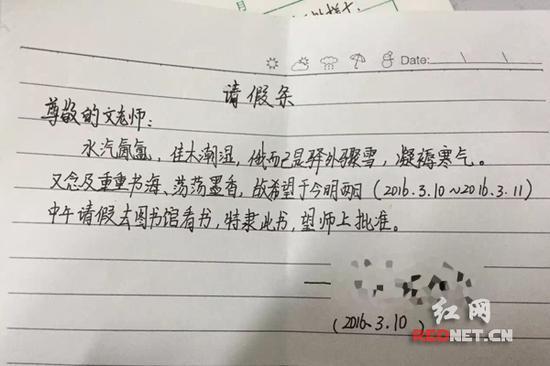 Date:
请假条
尊敬的文老师：
水汽氤氲，佳木潮湿，俄而已是驿外骤雪，凝褥寒气。
又念及重重书海、荡荡墨香，故希望于今明两日（2016.3.10～2016.3.11）
中午请假去图书馆看书，特隶此书，望师上批准。
（2016.3.10）
红网
REDNET.CN